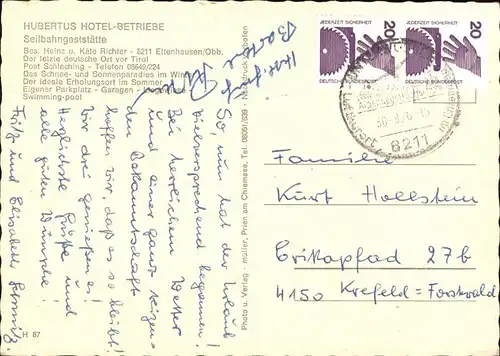 HUBERTUS HOTEL-BETRIEBE
Seilbahngaststätte
Bes. Heinz u. Käte Richter - 8211 Ettenhausen/Obb.
Der letzte deutsche Ort vor Tirol
Post Schleching - Telefon 08649/224
Das Schnee- und Sonnenparadies im Winter
Der ideale Erholungsort im Sommer
Eigener Parkplatz - Garagen -
Swimming-pool
Photo u. Verlag - müller, Prien am Chiemsee, Tel. 08051/839 · Nachdruck verboten
H 87
JEDERZEIT SICHERHEIT
20
DEUTSCHE BUNDESPOST
JEDERZEIT SICHERHEIT
20
DEUTSCHE BUNDESPOST
8211
So nun hat der Urlaub
vielversprechend begonnen.
Bei herrlichem Wetter
und einer ganz
den Bekanntschaft
hoffen wir, daß es so bleibt!
Wir drei genießen es!
Herzlichste Grüße und
alle guten Wünsche
Fritz und Elisabeth
Familie
Kurt Hollstein
Erikapfad 27b
4150 Krefeld-Forstwald